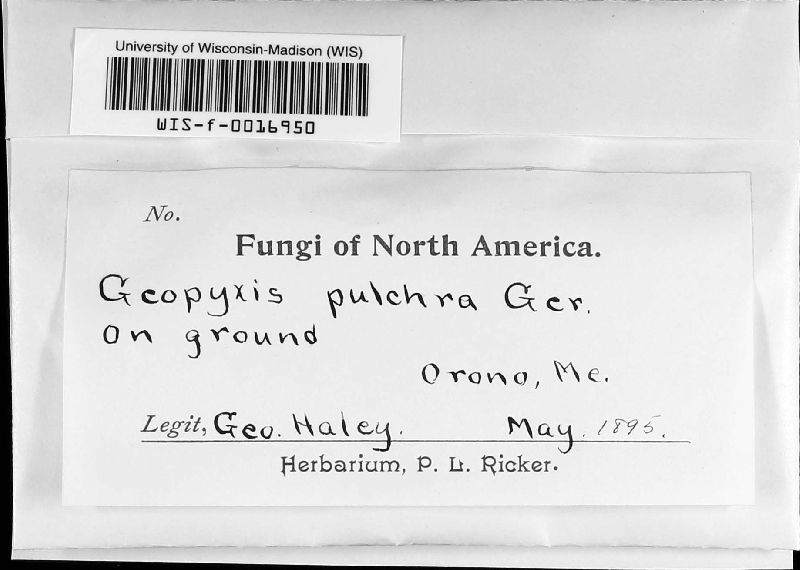 University of Wisconsin-Madison (WIS)
WIS-f-0016950
No.
Fungi of North America.
Geopyxis pulchra Ger.
on ground
Orono, Me.
Legit, Geo. Haley. May. 1895.
Herbarium, P. L. Ricker.